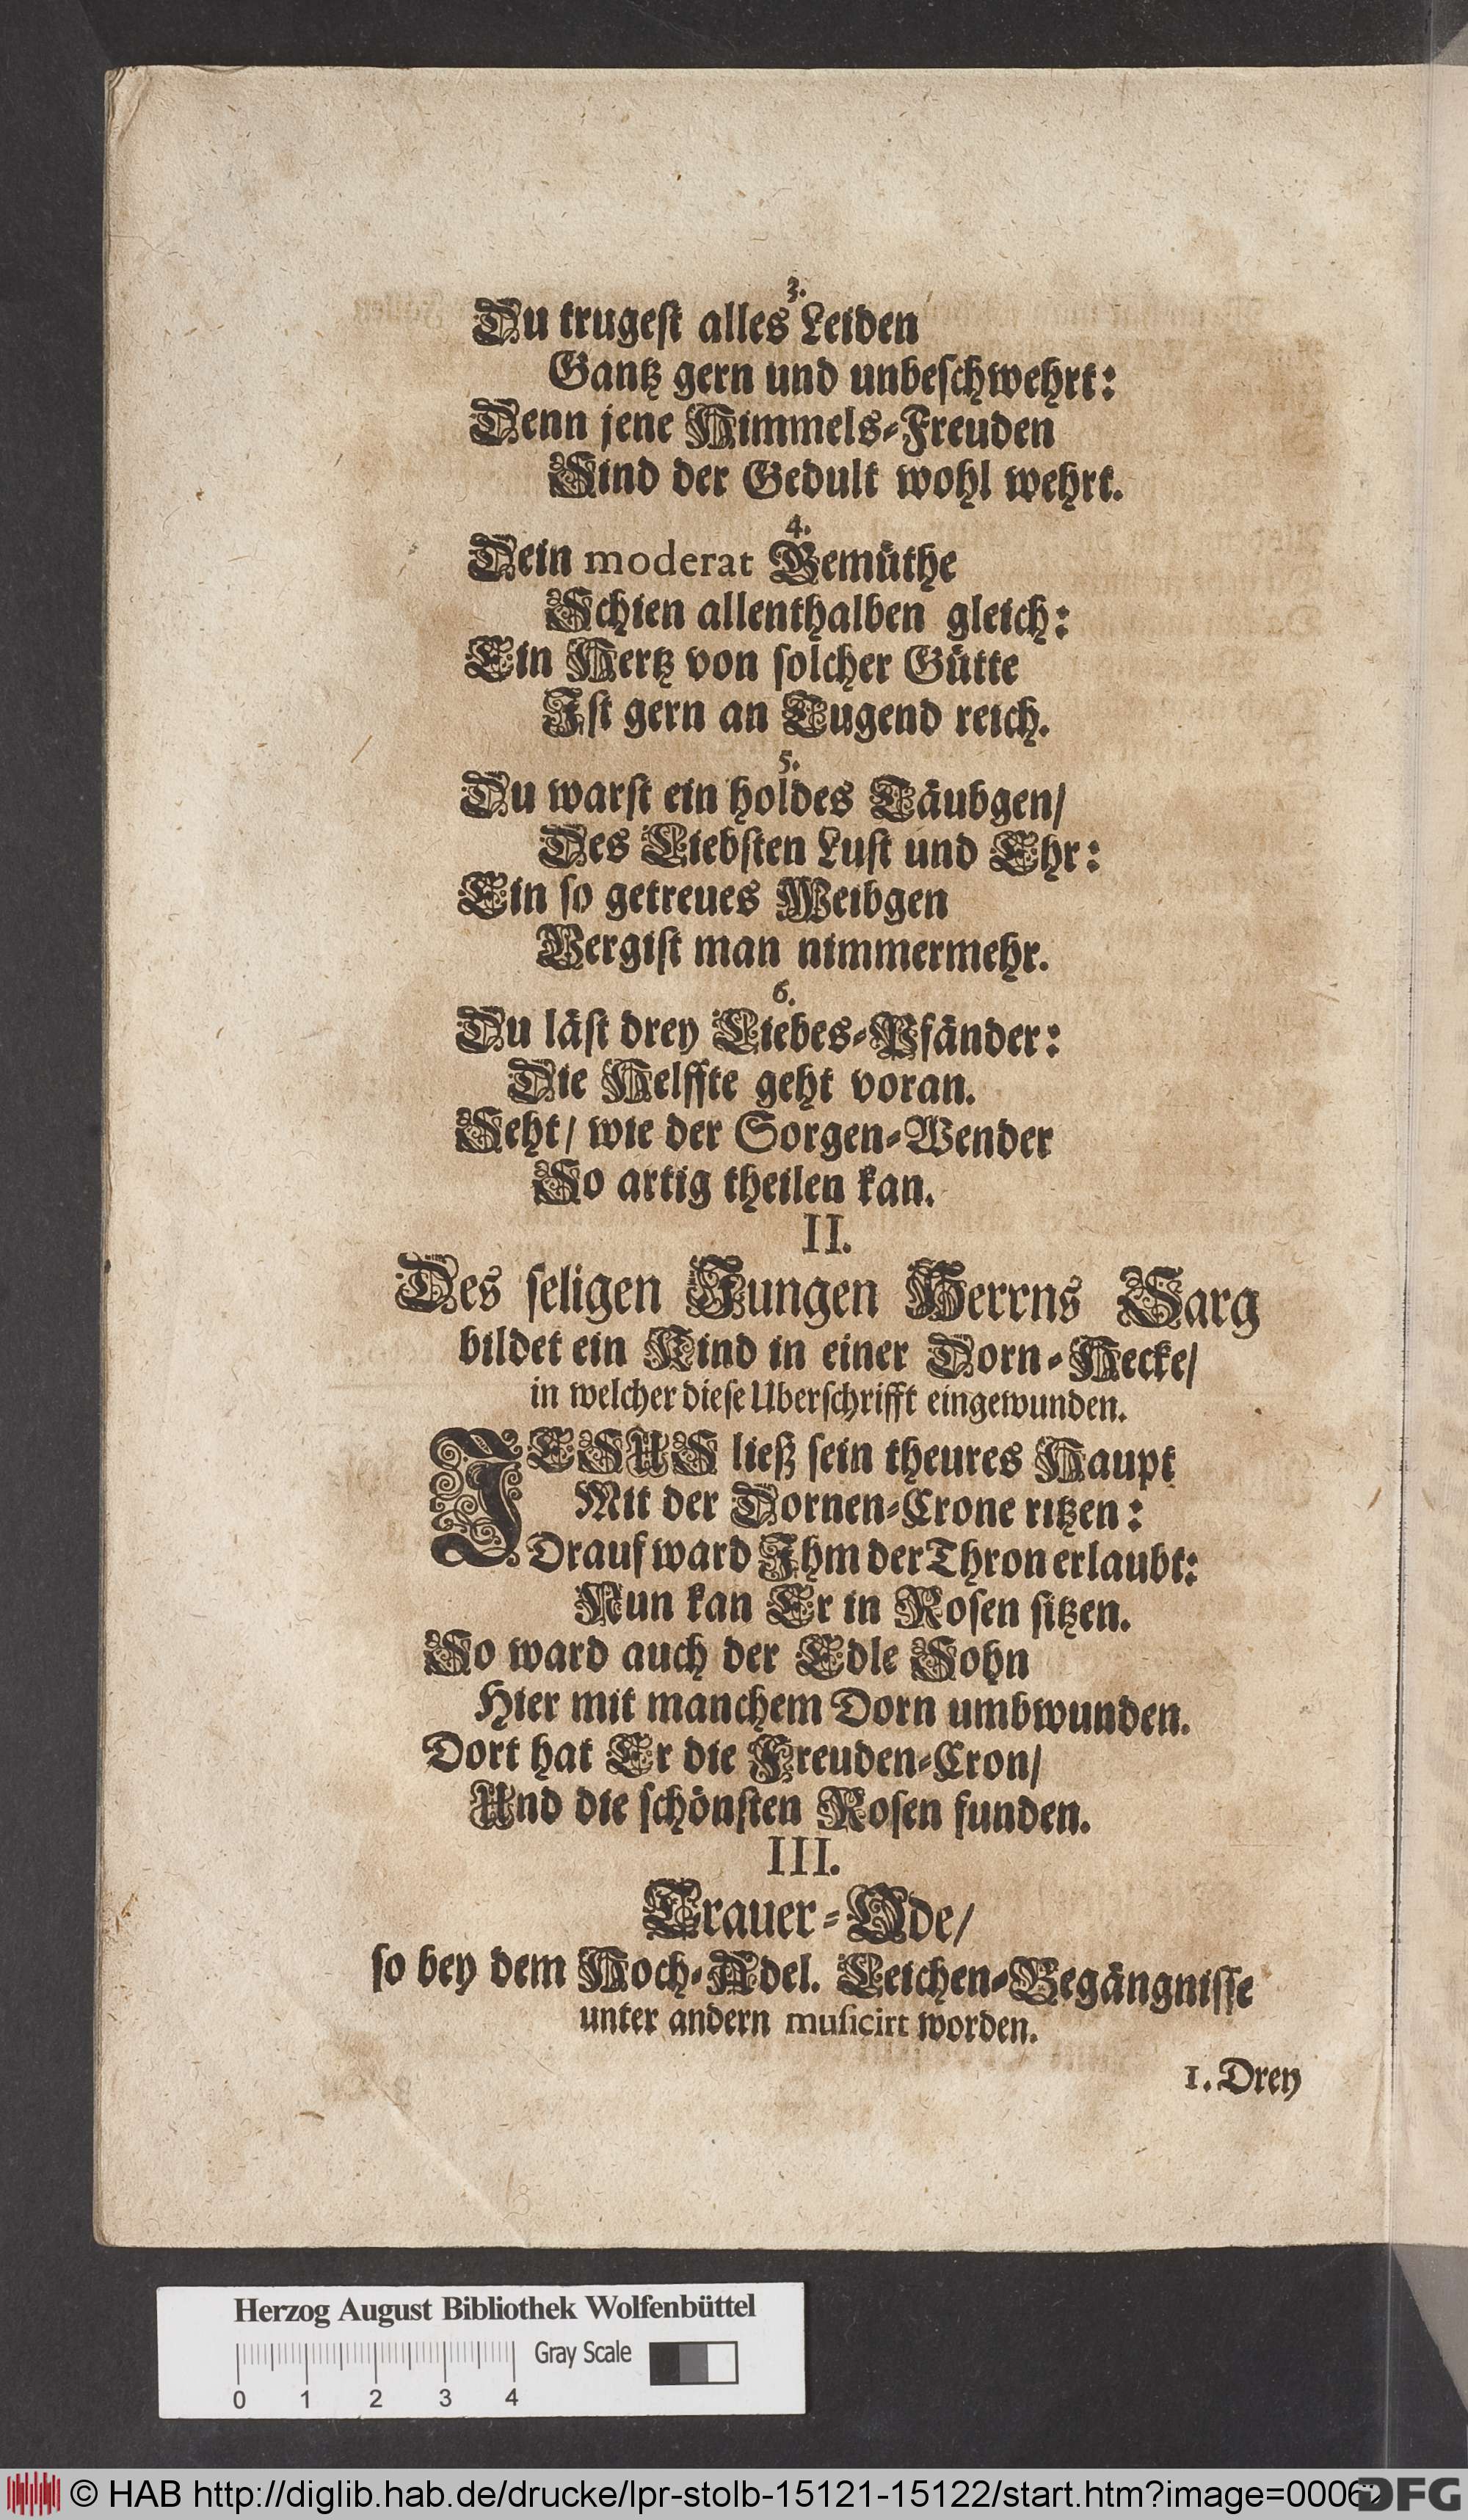 3.
Du trugeſt alles Leiden
Gantz gern und unbeſchwehrt:
Denn jene Himmels-Freuden
Sind der Gedult wohl wehrt.
4.
Dein moderat Gemüthe
Schien allenthalben gleich:
Ein Hertz von ſolcher Gütte
Iſt gern an Tugend reich.
5.
Du warſt ein holdes Täubgen/
Des Liebſten Luſt und Ehr:
Ein ſo getreues Weibgen
Vergiſt man nimmermehr.
6.
Du läſt drey Liebes-Pfänder:
Die Helffte geht voran.
Seht/ wie der Sorgen-Wender
So artig theilen kan.
II.
Des ſeligen Jungen Herrns Sarg
bildet ein Kind in einer Dorn-Hecke/
in welcher dieſe Uberſchrifft eingewunden.
JESUS ließ ſein theures Haupt
Mit der Dornen-Crone ritzen:
Drauf ward Ihm der Thron erlaubt:
Nun kan Er in Roſen ſitzen.
So ward auch der Edle Sohn
Hier mit manchem Dorn umbwunden.
Dort hat Er die Freuden-Cron/
Und die ſchönſten Roſen funden.
III.
Trauer-Ode/
ſo bey dem Hoch-Adel. Leichen-Begängniſſe
unter andern muſicirt worden.
1. Drey
Herzog August Bibliothek Wolfenbüttel
Gray Scale
0 1 2 3 4
© HAB http://diglib.hab.de/drucke/lpr-stolb-15121-15122/start.htm?image=00062
DFG